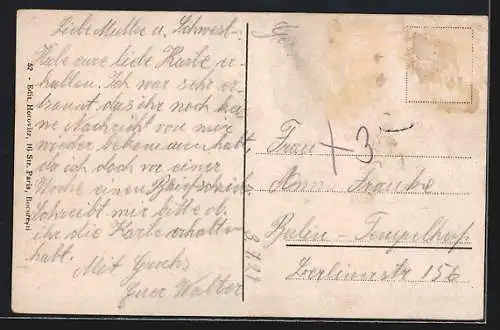 Liebe Mutter u. Schwest.
Habe eure liebe Karte er-
halten. Ich war sehr er-
staunt, das ihr noch kei
ne Nachricht von mir
wieder bekommen habt,
da ich doch vor einer
Woche einen Brief schrieb
Schreibt mir bitte ob
ihr die Karte erhalten
habt.
Mit Gruss
Euer Walter
52 - Edit. Horovitz, 16 Str. Paris, Bucuresti
Frau
+ 3
Anna Franke
Berlin - Tempelhof
Berlinerstr 156